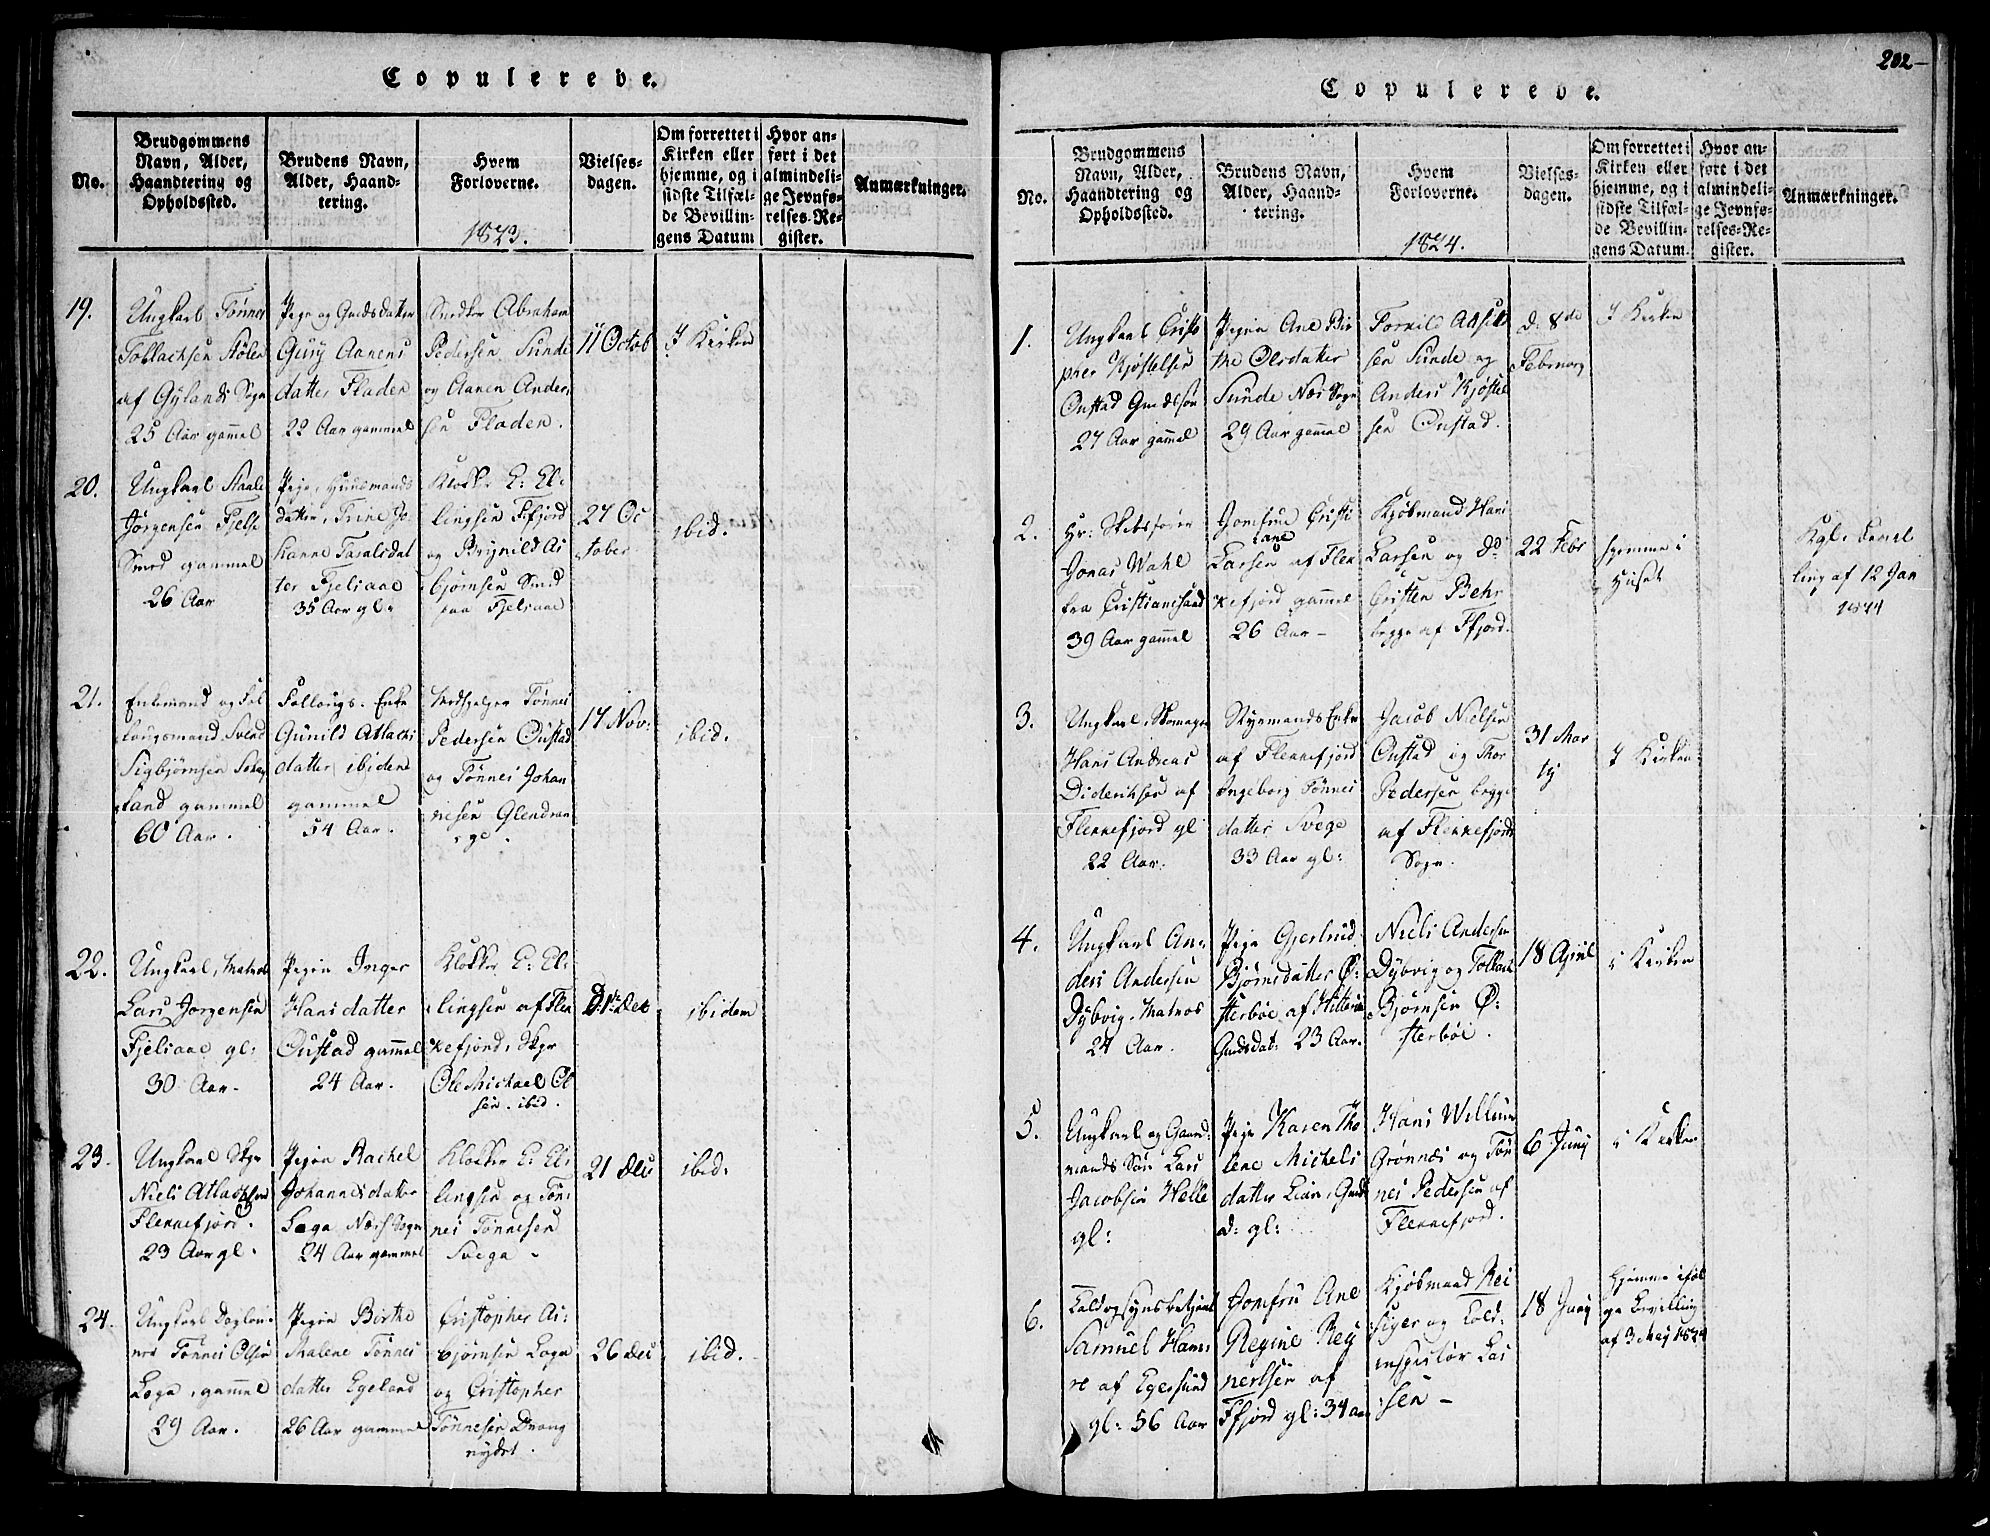 Copulerede.
No.
Brudgommens
Navn, Alder,
Haandtering og
Opholdssted.
Brudens Navn,
Alder, Haand-
tering.
Hvem
Forloverne.
1823.
Vielses-
dagen.
Om forrettet i
Kirken eller
hjemme, og i
sidste Tilfæl-
de Bevillin-
gens Datum
Hvor an-
ført i det
almindeli-
ge Jevnfø-
relses-Re-
gister.
Anmærkninger.
19.
Ungkarl Tønnes
Tollachsen Stølen
af Gylands Sogn
25 Aar gammel
Pige og Gaardsdatter
Gury Aanens
datter Fladen
22 Aar gammel
Snedker Abraham
Pedersen Sunde
og Aanen Ander
sen Fladen.
11 Octob
I Kirken
20.
Ungkarl Staale
Jørgensen Fjelse
Smed gammel
26 Aar
Pige, Huusmands
datter, Trine Jo
hanne
ter Fjelsaae
35 Aar gl.
Klokker E: El:
lingsen Ffjord
og Brynild As
bjørnsen Smed
paa Fjelsaae
27 Oc
tober
ibid.
21.
Enkemand og Fol
lougsmand Svend
Sigbjørnsen
land gammel
60 Aar.
Follougs-Enke
Gunild Atlachs
datter ibidem
gammel
54 Aar.
Medhjelper Tønnes
Pedersen Oustad
og Tønnes Johan
nesen Glendran
ge.
17 Nov:
ibid.
22.
Ungkarl, Matros
Lars Jørgensen
Fjelsaae gl:
30 Aar.
Pigen Inger
Hansdatter
Oustad gammel
24 Aar.
Klokker E: El:
lingsen af Flek
kefjord, Skpr
Ole Michael Ol
sen. ibid.
D. 1te Dec
ibidem
23.
Ungkarl Skpr
Niels Atlachsen
Flekkefjord.
23 Aar gl.
Pigen Rachel
Johannesdatter
Loga Næss Sogn
24 Aar gammel
Klokker E: El:
lingsen og Tøn:
nes Tønnesen
Svega
21 Dec
ibid.
24.
Ungkarl Dagløn:
ner Tønnes Olsen
Loga, gammel
29 Aar.
Pigen Birthe
Malene Tønnes
datter Egeland
26 Aar gammel
Cristopher As:
bjørnsen Loga
og Cristopher
Tønnesen Drang
nydet.
26 Dec
ibid.
202
Copulerede.
No.
Brudgommens
Navn, Alder,
Haandtering og
Opholdssted.
Brudens Navn,
Alder, Haand-
tering.
Hvem
Forloverne.
1824.
Vielses-
dagen.
Om forrettet i
Kirken eller
hjemme, og i
sidste Tilfæl-
de Bevillin-
gens Datum.
Hvor an-
ført i det
almindeli-
ge Jevnfø-
relses-Re-
gister.
Anmærkninger.
1.
Ungkarl Cristo
pher Kjøstelsen
Oustad Gaardssøn
27 Aar gammel
Pigen Ane Bir
the Olsdatter
Sunde Næs Sogn
29 Aar gammel
Tornild
sen Sunde og
Anders Kjøstel
sen Oustad.
D: 8de
Februarj
I Kirken
2.
Hr: Skibsfører
Jonas Wahl
fra Cristiansand
39 Aar gammel
Jomfrue Cristi
ane
Larsen af Flek
kefjord gammel
26 Aar
Kjøbmand Hans
Larsen og Do
Cristen Behr
begge af Ffjord.
22 Febr
hjemme i
Huset
Kgl. Bevil
ling af 12 Jan
1824
3.
Ungkarl, Skomager
Hans Andreas
Dideriksen af
Flekkefjord gl
22 Aar.
Styrmands Enke
af Flekkefjord
Ingeborg Tønnes
datter Svege
33 Aar gl:
Jacob Nielsen
Oustad og Thor
Pedersen begge
af Flekkefjords
Sogn.
31 Mar
tj
I Kirken
4.
Ungkarl An:
ders Andersen
Dybvig, Matros
24 Aar.
Pige Gjertrud
Bjørnsdatter Ø:
sterbøe af Hitterøe
Gaardsdat: 23 Aar.
Niels Andersen
Dybvig og Tollach
Bjørnsen Ø:
sterbøe.
18 April
i Kirken
5.
Ungkarl og Gaard:
mands Søn Lars
Jacobsen Helle
gl:
Pige Karen Tho
lene Michels
datter Lian, Gaards
d: gl:
Hans Willum
Grønnæs og Tøn
nes Pedersen af
Flekkefjord.
6 Junij
i Kirken
6.
Toldogsynsbetjent
Samuel Hans
af Egersund
gl: 56 Aar
Jomfru Ane
Regine Rey
nertsen af
Ffjord gl: 34 aar
Kjøbmand Rei
siger og Told:
inspectør Las
sen -
18 Junij
Hjemme iføl
ge Bevilling
af 3 Maj 1824